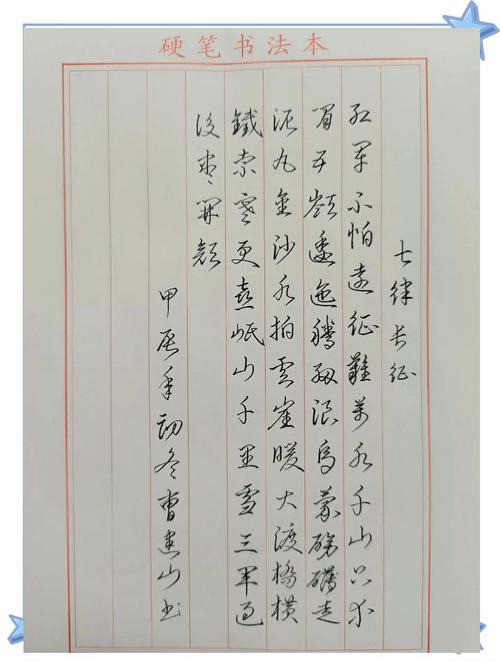 硬笔书法本
七律长征
红军不怕远征難萬水千山只等
闲五嶺逶迤腾细浪乌蒙磅礴走
泥丸金沙水拍雲崖暖大渡橋横
鐵索寒更喜岷山千里雪三军过
後尽開颜
甲辰年初冬曹建山书